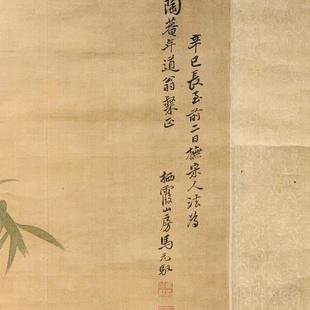 辛巳長至前二日橅宋人法為
陶菴年道翁粲正
栖霞山房馬元馭